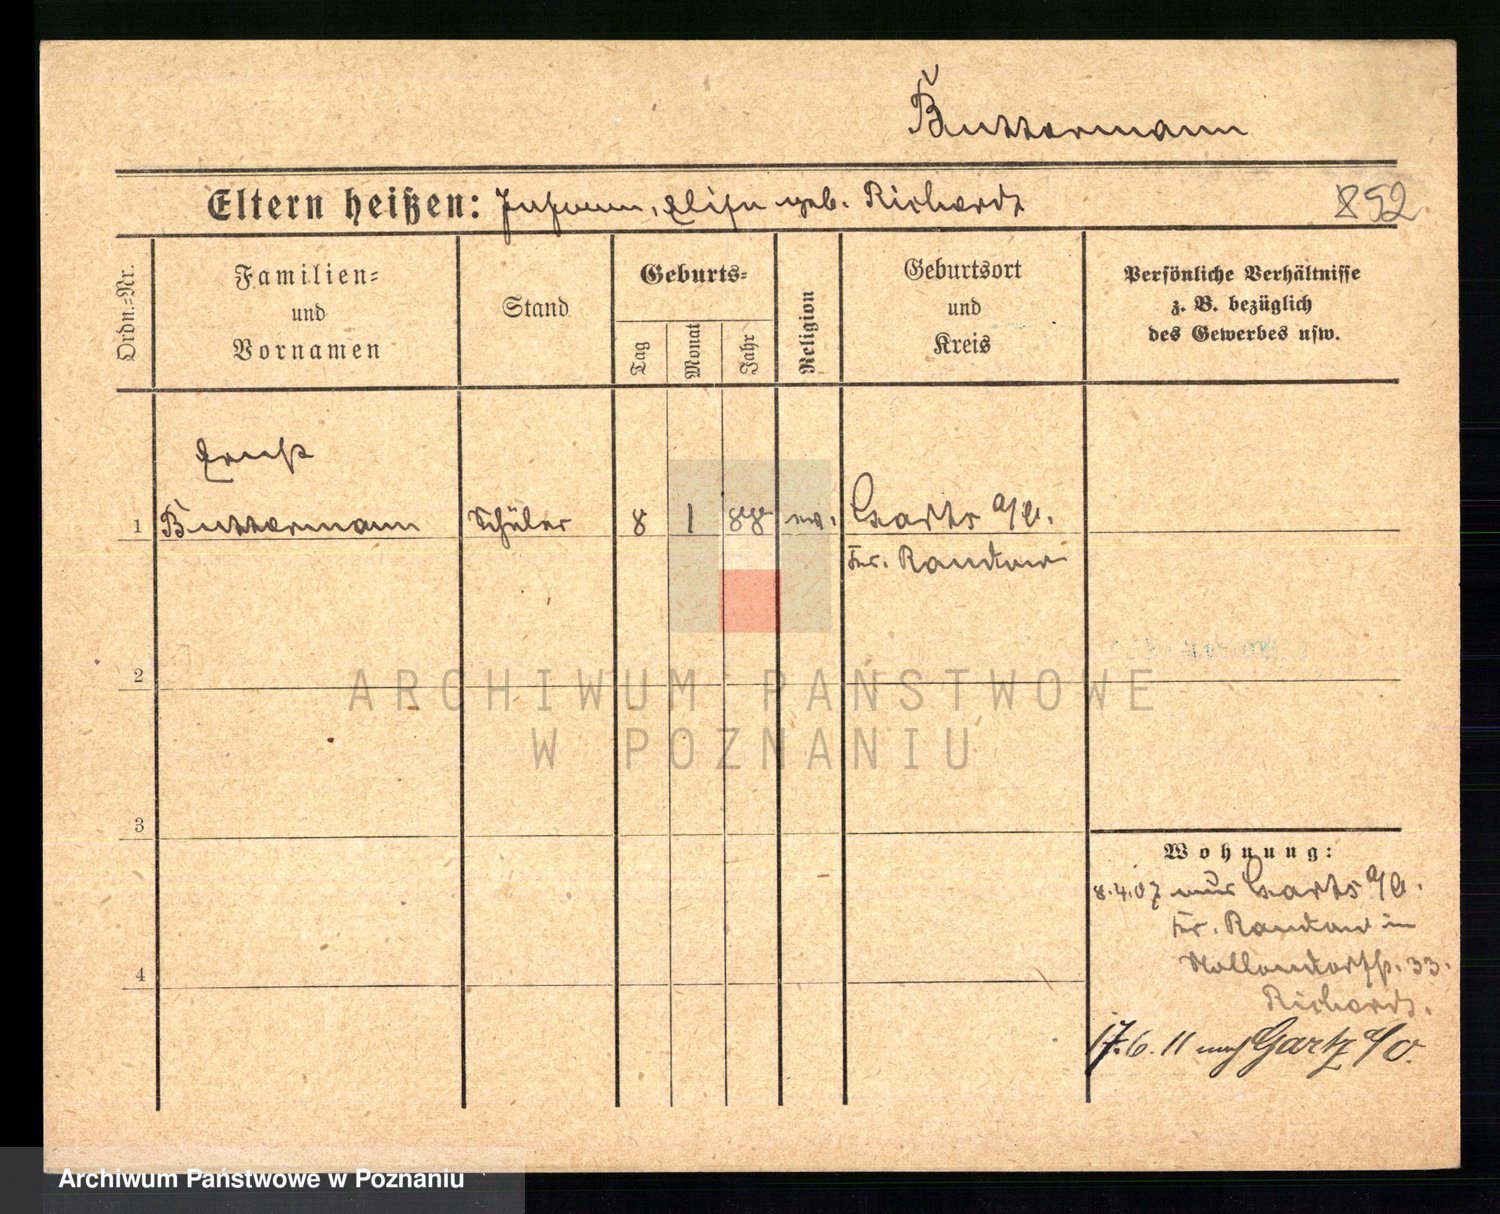 Buttermann
Eltern heißen: Johann, Elise geb. Richardt
852
Ordn.=Nr.
Familien=
und
Vornamen
Stand
Geburts=
Tag
Monat
Jahr
Religion
Geburtsort
und
Kreis
Persönliche Verhältnisse
z. B. bezüglich
des Gewerbes usw.
Ernst
1 Buttermann Schüler 8 1 88 ev. Gartz a/O.
Kr. Randow
2
3
4
Wohnung:
8.4.07 aus Gartz a/O.
Kr. Randow in
Nollendorfstr. 33.
Richardt.
17.6.11 nach Gartz a/O.
ARCHIWUM PAŃSTWOWE
W POZNANIU
Archiwum Państwowe w Poznaniu